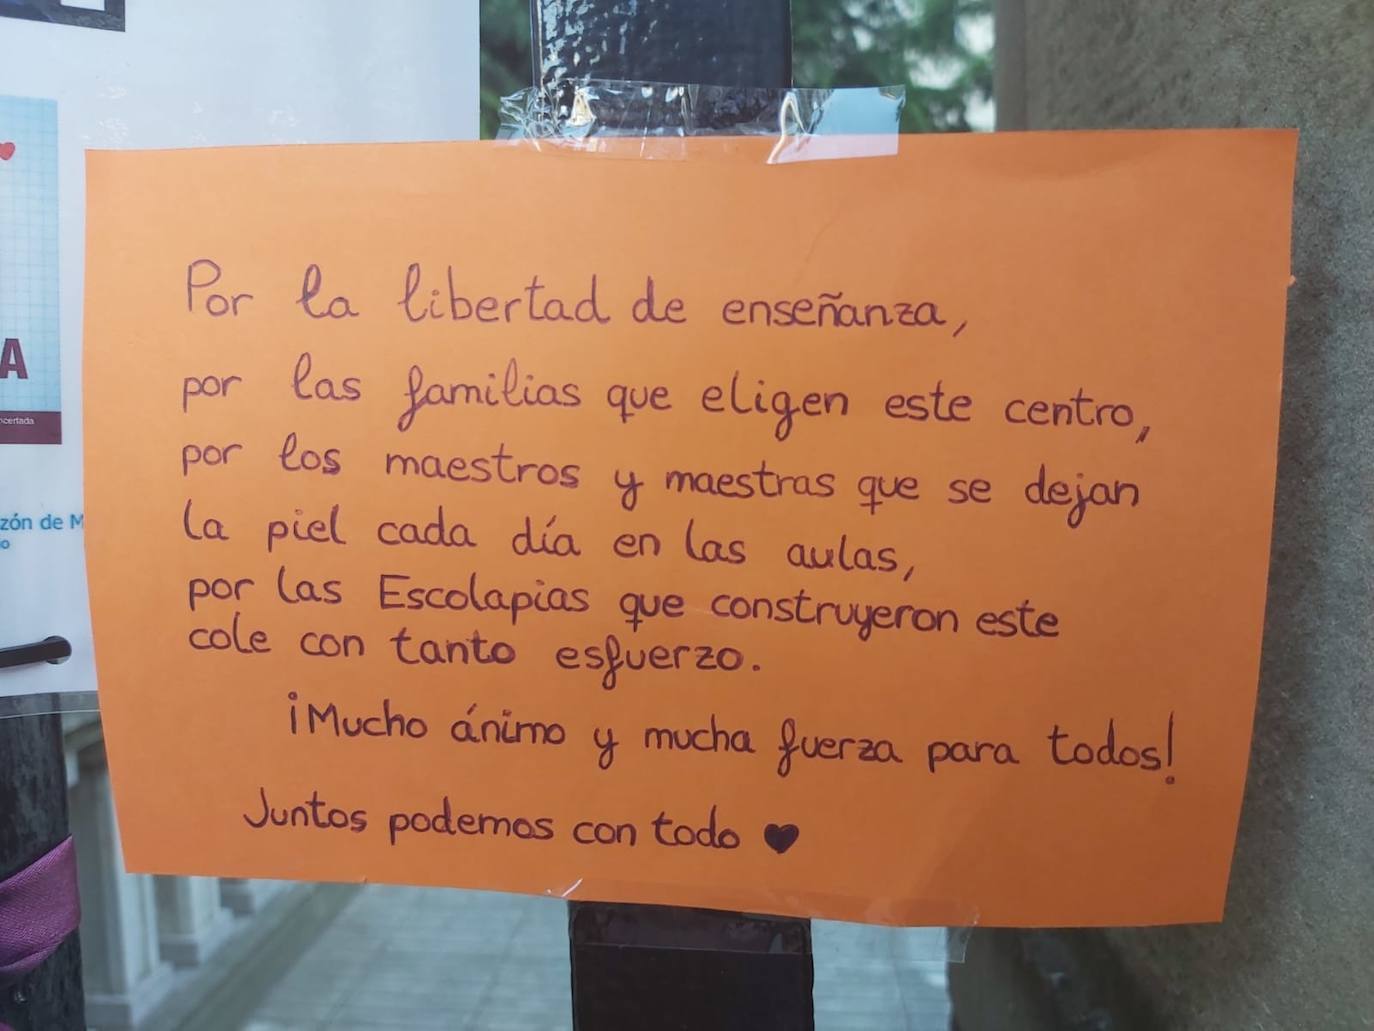 A
certada
zón de M
o
Por la libertad de enseñanza,
por las familias que eligen este centro,
por los maestros y maestras que se dejan
la piel cada día en las aulas,
por las Escolapias que construyeron este
cole con tanto esfuerzo.
¡Mucho ánimo y mucha fuerza para todos!
Juntos podemos con todo ♥